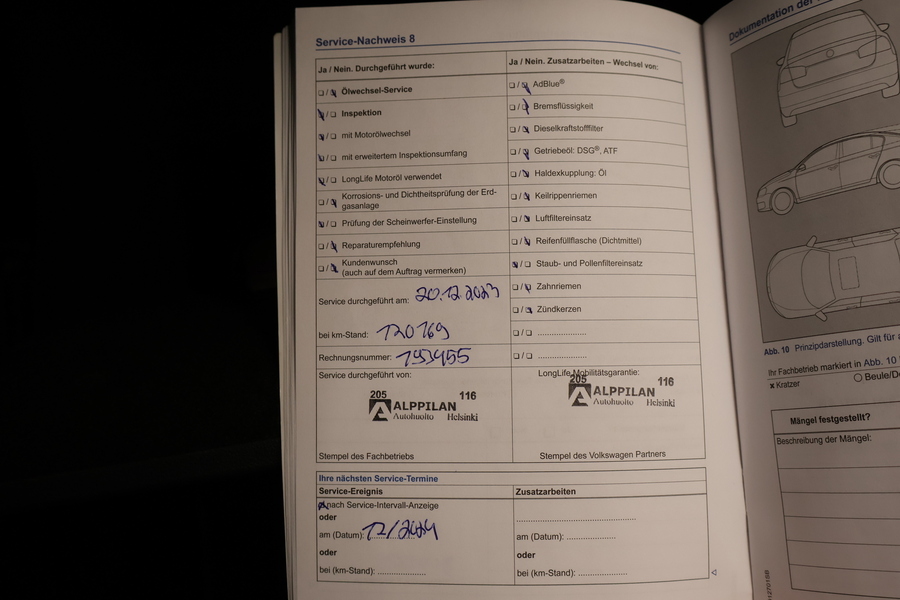 Service-Nachweis 8
Ja / Nein. Durchgeführt wurde:
Ölwechsel-Service
Inspektion
mit Motorölwechsel
mit erweitertem Inspektionsumfang
LongLife Motoröl verwendet
Korrosions- und Dichtheitsprüfung der Erd-
gasanlage
Prüfung der Scheinwerfer-Einstellung
Reparaturempfehlung
Kundenwunsch
(auch auf dem Auftrag vermerken)
Service durchgeführt am: 20.12.2023
bei km-Stand: 120769
Rechnungsnummer:
Service durchgeführt von:
205 116
ALPPILAN
Autohuolto Helsinki
Stempel des Fachbetriebs
Ja / Nein. Zusatzarbeiten – Wechsel von:
AdBlue®
Bremsflüssigkeit
Dieselkraftstofffilter
Getriebeöl: DSG®, ATF
Haldexkupplung: Öl
Keilrippenriemen
Luftfiltereinsatz
Reifenfüllflasche (Dichtmittel)
Staub- und Pollenfiltereinsatz
Zahnriemen
Zündkerzen
LongLife Mobilitätsgarantie:
205 116
ALPPILAN
Autohuolto Helsinki
Stempel des Volkswagen Partners
Ihre nächsten Service-Termine
Service-Ereignis
nach Service-Intervall-Anzeige
oder
am (Datum): 12/2024
oder
bei (km-Stand):
Zusatzarbeiten
am (Datum):
oder
bei (km-Stand):
Dokumentation der
Abb. 10 Prinzipdarstellung. Gilt für
Ihr Fachbetrieb markiert in Abb. 10
x Kratzer
Beule/
Mängel festgestellt?
Beschreibung der Mängel: